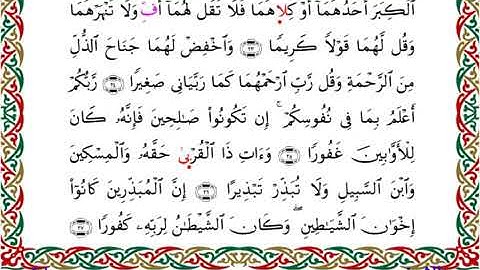 ٱلۡكِبَرَ أَحَدُهُمَآ أَوۡ كِلَاهُمَا فَلَا تَقُل لَّهُمَآ أُفّٖ وَلَا تَنۡهَرۡهُمَا
وَقُل لَّهُمَا قَوۡلٗا كَرِيمٗا ٢٣ وَٱخۡفِضۡ لَهُمَا جَنَاحَ ٱلذُّلِّ
مِنَ ٱلرَّحۡمَةِ وَقُل رَّبِّ ٱرۡحَمۡهُمَا كَمَا رَبَّيَانِي صَغِيرٗا ٢٤ رَّبُّكُمۡ
أَعۡلَمُ بِمَا فِي نُفُوسِكُمۡۚ إِن تَكُونُواْ صَٰلِحِينَ فَإِنَّهُۥ كَانَ
لِلۡأَوَّٰبِينَ غَفُورٗا ٢٥ وَءَاتِ ذَا ٱلۡقُرۡبَىٰ حَقَّهُۥ وَٱلۡمِسۡكِينَ
وَٱبۡنَ ٱلسَّبِيلِ وَلَا تُبَذِّرۡ تَبۡذِيرًا ٢٦ إِنَّ ٱلۡمُبَذِّرِينَ كَانُوٓاْ
إِخۡوَٰنَ ٱلشَّيَٰطِينِۖ وَكَانَ ٱلشَّيۡطَٰنُ لِرَبِّهِۦ كَفُورٗا ٢٧